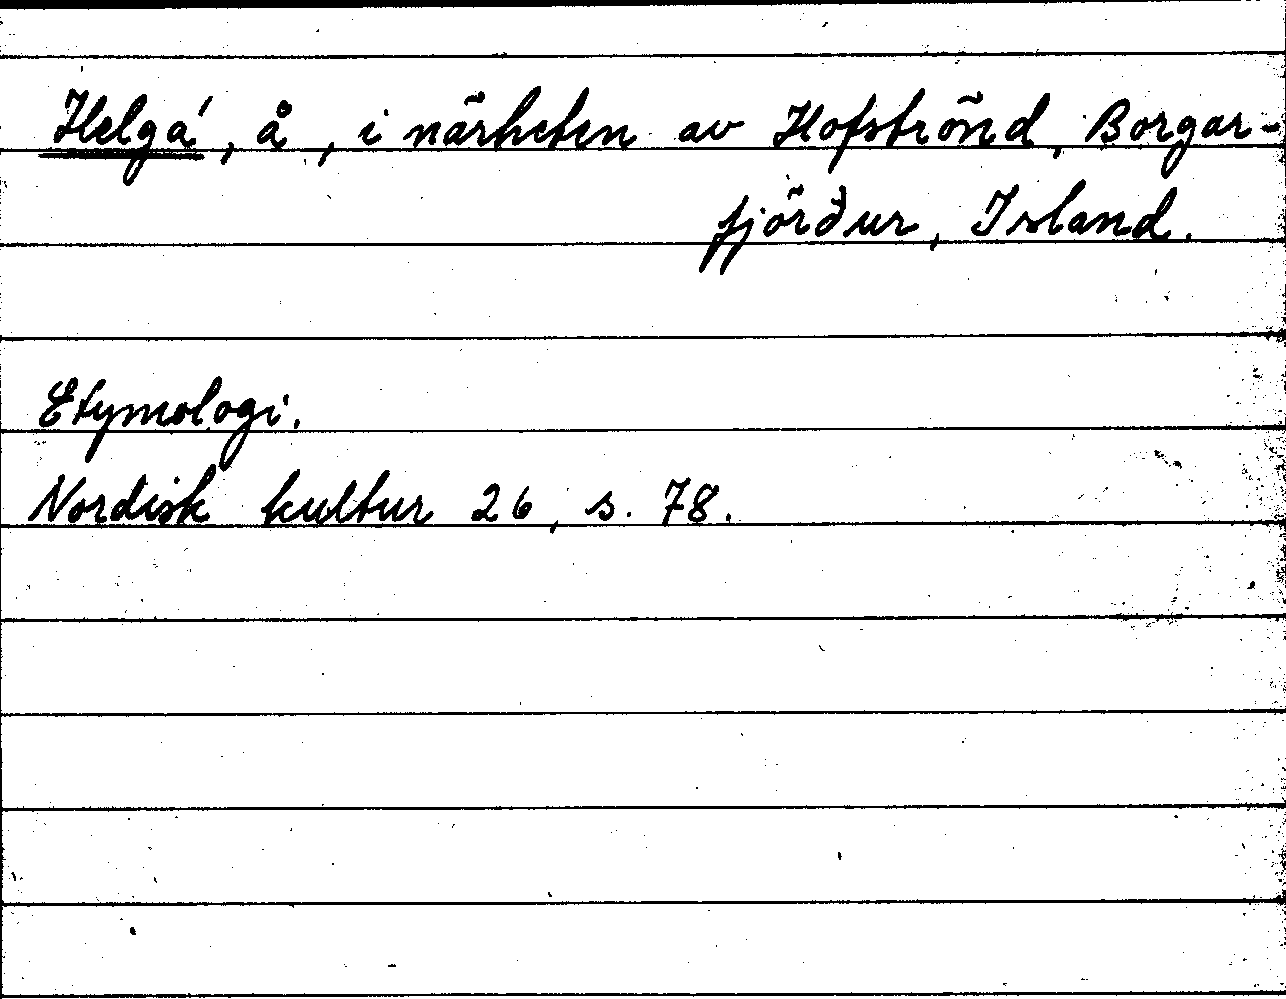 Helgá, å, i närheten av Hofströnd, Borgar-
fjörður, Island.
Etymologi.
Nordisk kultur 26, s. 78.